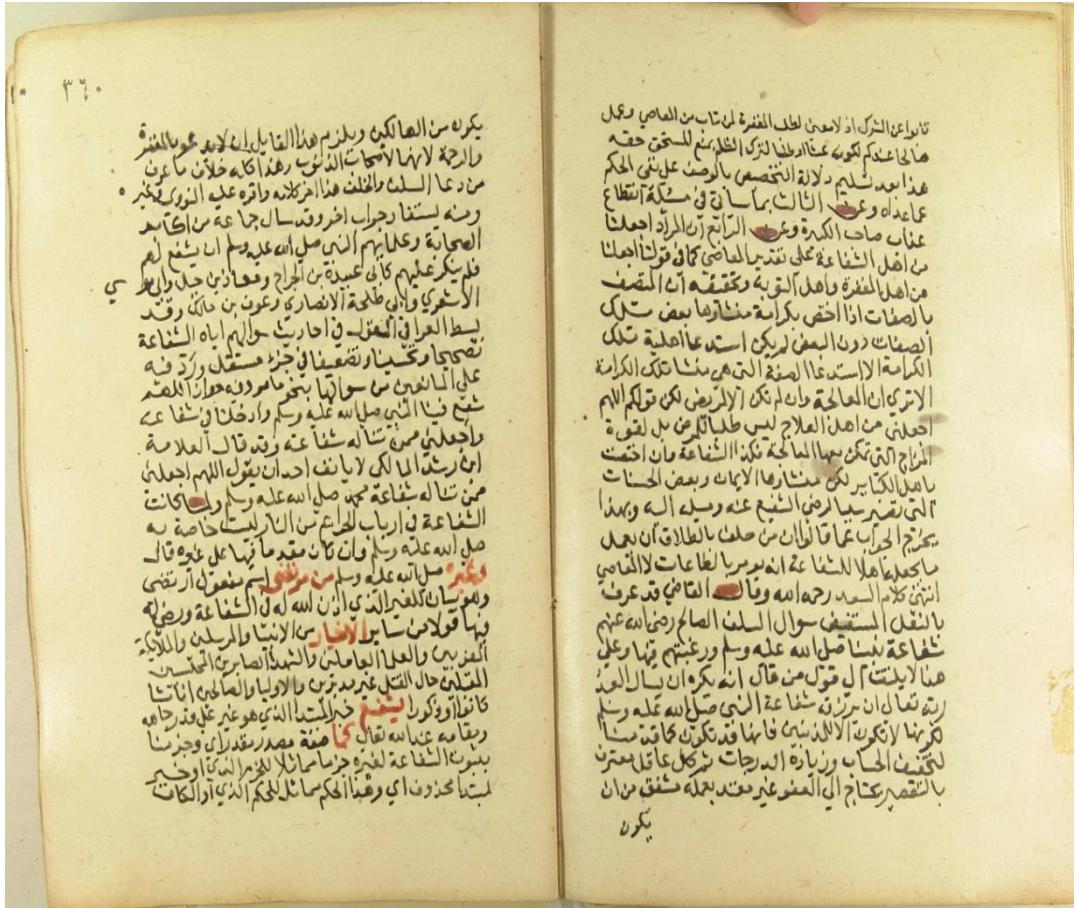 تابوا عن الشرك اذ لا معنى لطلب المغفرة لمن تاب من المعاصي وعمل
صالحا عندكم لكونه عبثا او طلبا لترك الظلم بمنع المستحق حقه
هذا بعد تسليم دلالة التخصيص بالوصف على نفي الحكم
عما عداه وعن الثالث بما سيأتي في مسئلة انقطاع
عذاب صاحب الكبيرة وعن الرابع ان المراد اجعلنا
من اهل الشفاعة على تقدير المعاصي كما في قولنا اجعلنا
من اهل المغفرة واهل التوبة وتحقيقه ان المتصف
بالصفات اذا اختص بكرامة منشاؤها بعض تلك
الصفات دون البعض لم يكن استدعا اهلية تلك
الكرامة الا استدعا الصفة التي هي منشا تلك الكرامة
الا ترى ان المعالجة وان لم تكن الا لمريض لكن قولكم اللهم
اجعلني من اهل العلاج ليس طلبا للمرض بل لقوة
المزاج التي تمكن معها المعالجة فكذا الشفاعة وان اختصت
باهل الكباير لكن منشاؤها الايمان وبعض الحسنات
التي تصير سببا لرضى الشفيع عنه وميله اليه وبهذا
يخرج الجواب عما قالوا ان من حلف بالطلاق ان يعمل
ما يجعله اهلا للشفاعة انه يومر بالطاعات لا المعاصي
انتهى كلام السعد رحمه الله وقال القاضي قد عرف
بالنقل المستفيض سوال السلف الصالح رضي الله عنهم
شفاعة نبينا صلى الله عليه وسلم ورغبتهم فيها وعلى
هذا لا يلتفت الى قول من قال انه يكره ان يسال العبد
ربه تعالى ان يرزقه شفاعة النبي صلى الله عليه وسلم
لكونها لا تكون الا للمذنبين فانها قد تكون كما قدمنا
لتخفيف الحساب وزيادة الدرجات ثم كل عاقل معترف
بالتقصير محتاج الى العفو غير معتد بعمله مشفق من ان
يكون
٣٦٠
يكون من الهالكين ويلزم هذا القايل ان لا يدعو بالمغفرة
والرحمة لانها لاصحاب الذنوب وهذا كله خلاف ما عرف
من دعا السلف والخلف هذا اخر كلامه واقره عليه النووي وغيره
ومنه يستفاد جواب اخر وقد سال جماعة من اكابر
الصحابة وعلمايهم النبي صلى الله عليه وسلم ان يشفع لهم
فلم ينكر عليهم كابي عبيدة بن الجراح ومعاذ بن جبل وابي موسي
الاشعري وابي طلحة الانصاري وعوف بن مالك وقد
بسط العراقي القول في احاديث سوالهم اياه الشفاعة
تصحيحا وتحسينا وتضعيفا في جزء مستقل ورد فيه
على المانعين من سوالها بنحو ما مر وفيه جواز اللهم
شفع فينا النبي صلى الله عليه وسلم وادخلنا في شفاعته
واجعلني ممن تناله شفاعته وقد قال العلامة
ابن رشد المالكي لا يانف احد ان يقول اللهم اجعلني
ممن تناله شفاعة محمد صلى الله عليه وسلم ولما كانت
الشفاعة في ارباب الجرايم من النار ليست خاصة به
صلى الله عليه وسلم وان كان مقدما فيها على غيره قال
وغيره صلى الله عليه وسلم من مرتضى اسم مفعول ارتضى
وهو بيان للغير الذي اذن الله له في الشفاعة ورضي له
فيها قولا من ساير الاخيار من الانبيا والمرسلين والملايكة
المقربين والعلما العاملين والشهدا الصابرين المحتسبين
المقبلين حال القتل غير مدبرين والاوليا والصالحين اناثا
كانوا او ذكورا يشفع خبر المبتدا الذي هو غير على قدر جاهه
ومقامه عند الله تعالى كما صفة مصدر مقدر اي وجزمنا
بثبوت الشفاعة لغيره جزما مماثلا للجزم الذي او خبر
لمبتدا محذوف اي وهذا الحكم مماثل للحكم الذي او الكاف